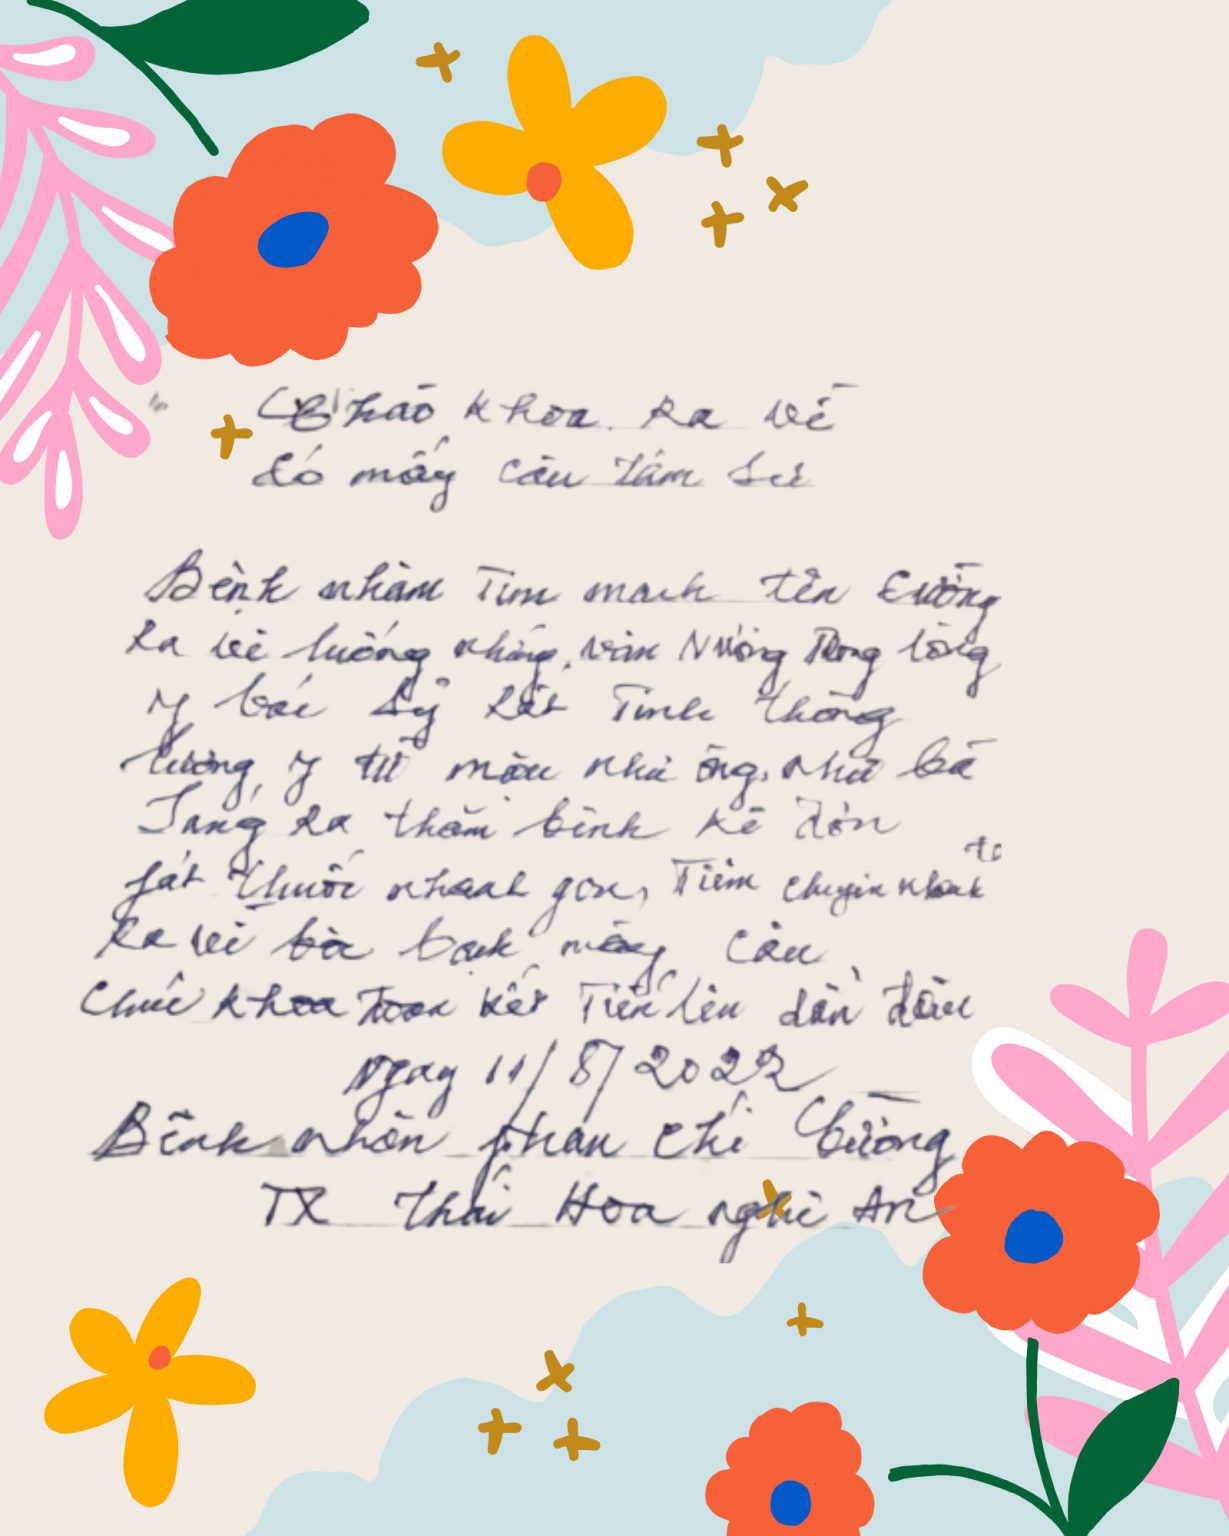 Chào khoa ra về
Có mấy câu tâm sự
Bệnh nhân Tim mạch tên Cường
Ra về luống những vấn vương trong lòng
Y bác sỹ rất Tinh thông
lương y từ mẫu như ông, như bà
Sáng ra thăm bệnh kê đơn
fát thuốc nhanh gọn, Tiêm chuyền nhanh to
Ra về mấy câu
Chúc khoa kết Tiến lên dẫn đầu
Ngay 11/8/2022
Bệnh nhân phan chí Cường
TX Thái Hoa nghệ An